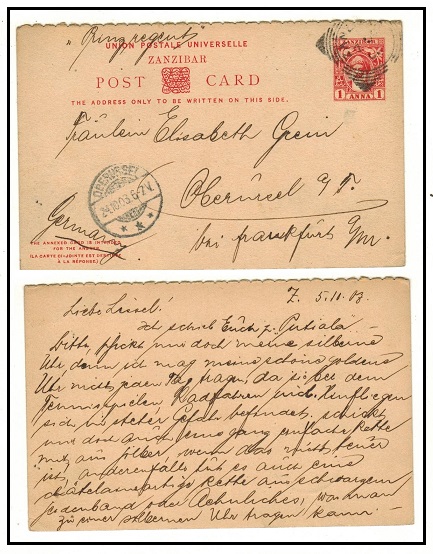 "Prinzregent"
UNION POSTALE UNIVERSELLE
ZANZIBAR
POST CARD
THE ADDRESS ONLY TO BE WRITTEN ON THIS SIDE.
ZANZIBAR
1 ANNA 1
Fräulein Elisabeth Grein
Oberursel a/T.
bei Frankfurt a/m.
Germany
OBERURSEL
24.10.03. 6-7V.
THE ANNEXED CARD IS INTENDED
FOR THE ANSWER
(LA CARTE CI-JOINTE EST DESTINÉE
À LA RÉPONSE)
Z. 5.10.03.
Liebe Liesel!
Ich schrieb Euch
bitte schickt mir doch meine silberne
Uhr, denn ich mag meine schöne goldene
Uhr nicht jeden Tag tragen, da sie bei dem
Tennisspielen, Radfahren
sich in steter Gefahr befindet. schickt
mir doch auch eine ganz einfache Kette
mit aus Silber, wenn das nicht teuer
ist, anderenfalls tut es auch eine
chatelaineartige Kette aus schwarzem
Lederband oder Aehnliches, was man
zu einer silbernen Uhr tragen kann.